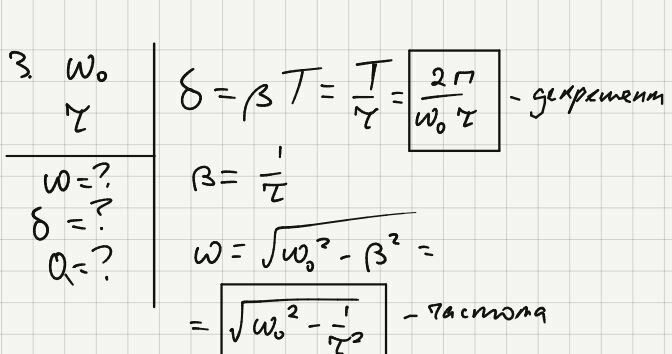 3. ω₀
τ
ω = ?
δ = ?
Q = ?
δ = βT = T/τ = 2π/(ω₀ τ) - декремент
β = 1/τ
ω = √(ω₀² - β²) =
= √(ω₀² - 1/τ²) - частота